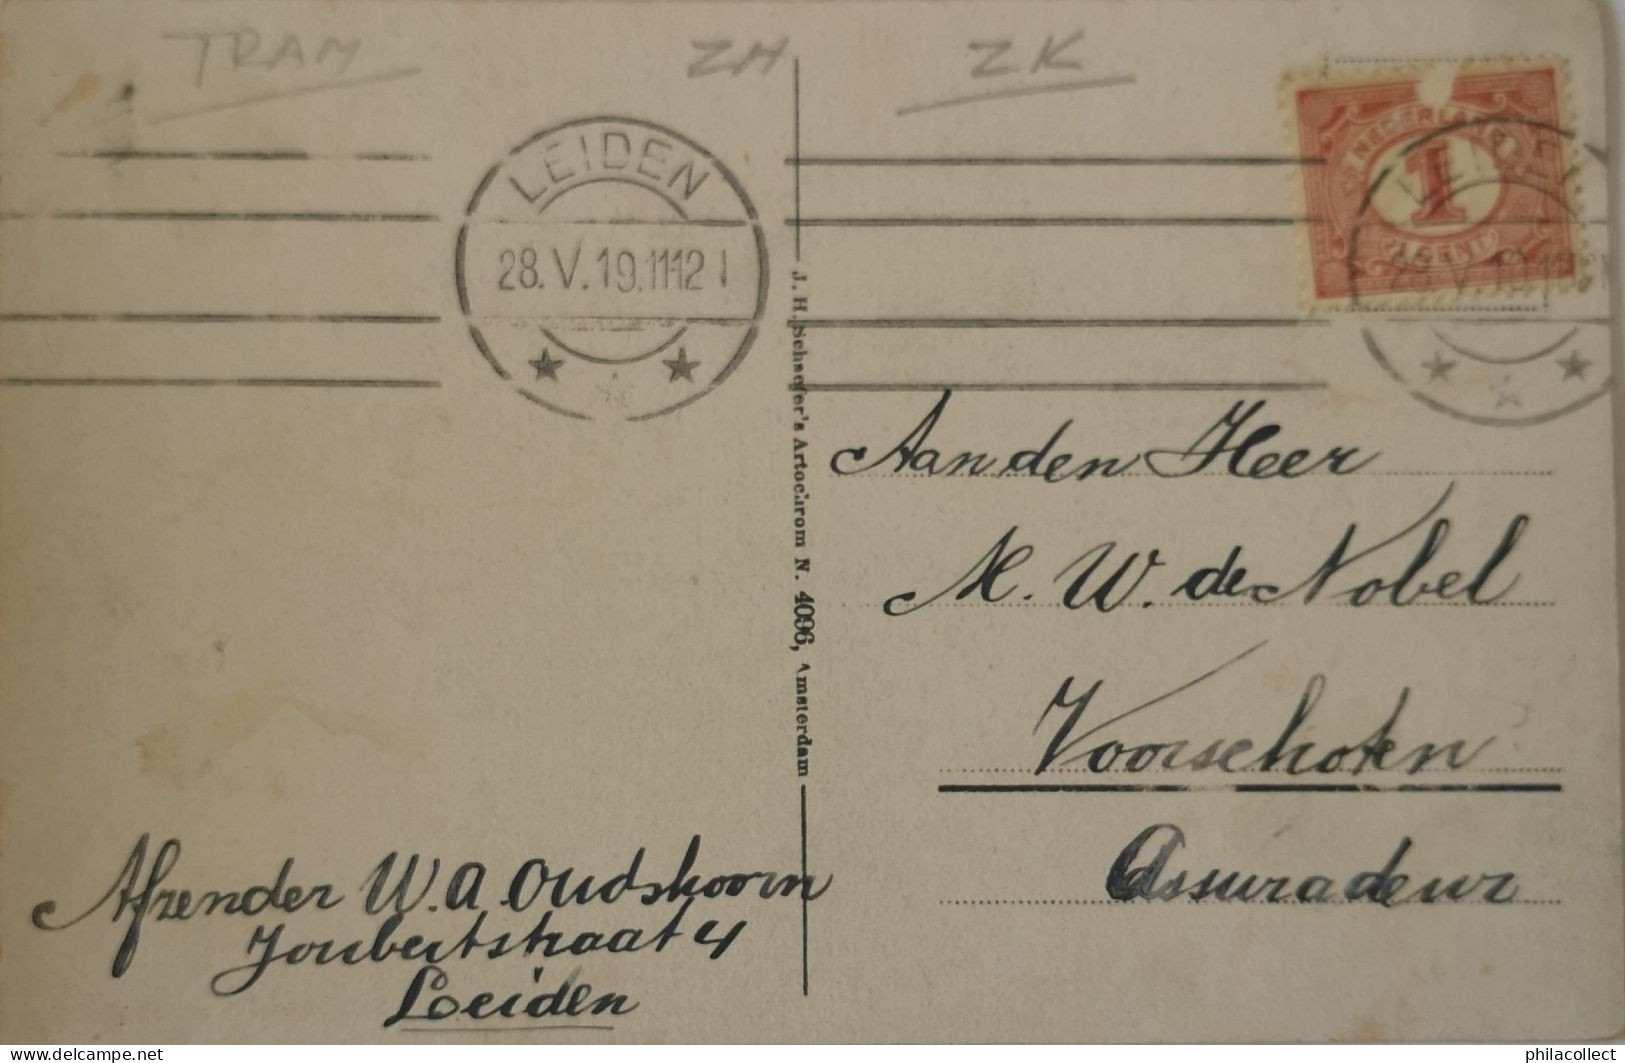 TRAM
ZH
ZK
LEIDEN
28.V.19.11-12 1
NEDERLAND
1
CENT
LEIDEN
28.V.19.11-12
J. H. Schaefer's Artochrom N. 4096, Amsterdam
Aan den Heer
M. W. de Nobel
Voorschoten
Assuradeur
Afzender W.A. Oudshoorn
Joubertstraat 4
Leiden
delcampe.net
philacollect